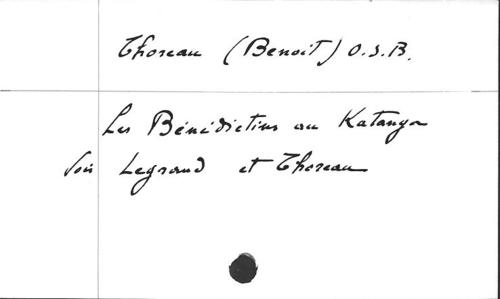 Thoreau (Benoit) O.S.B.
Les Bénédictins au Katanga
Voir Legrand et Thoreau